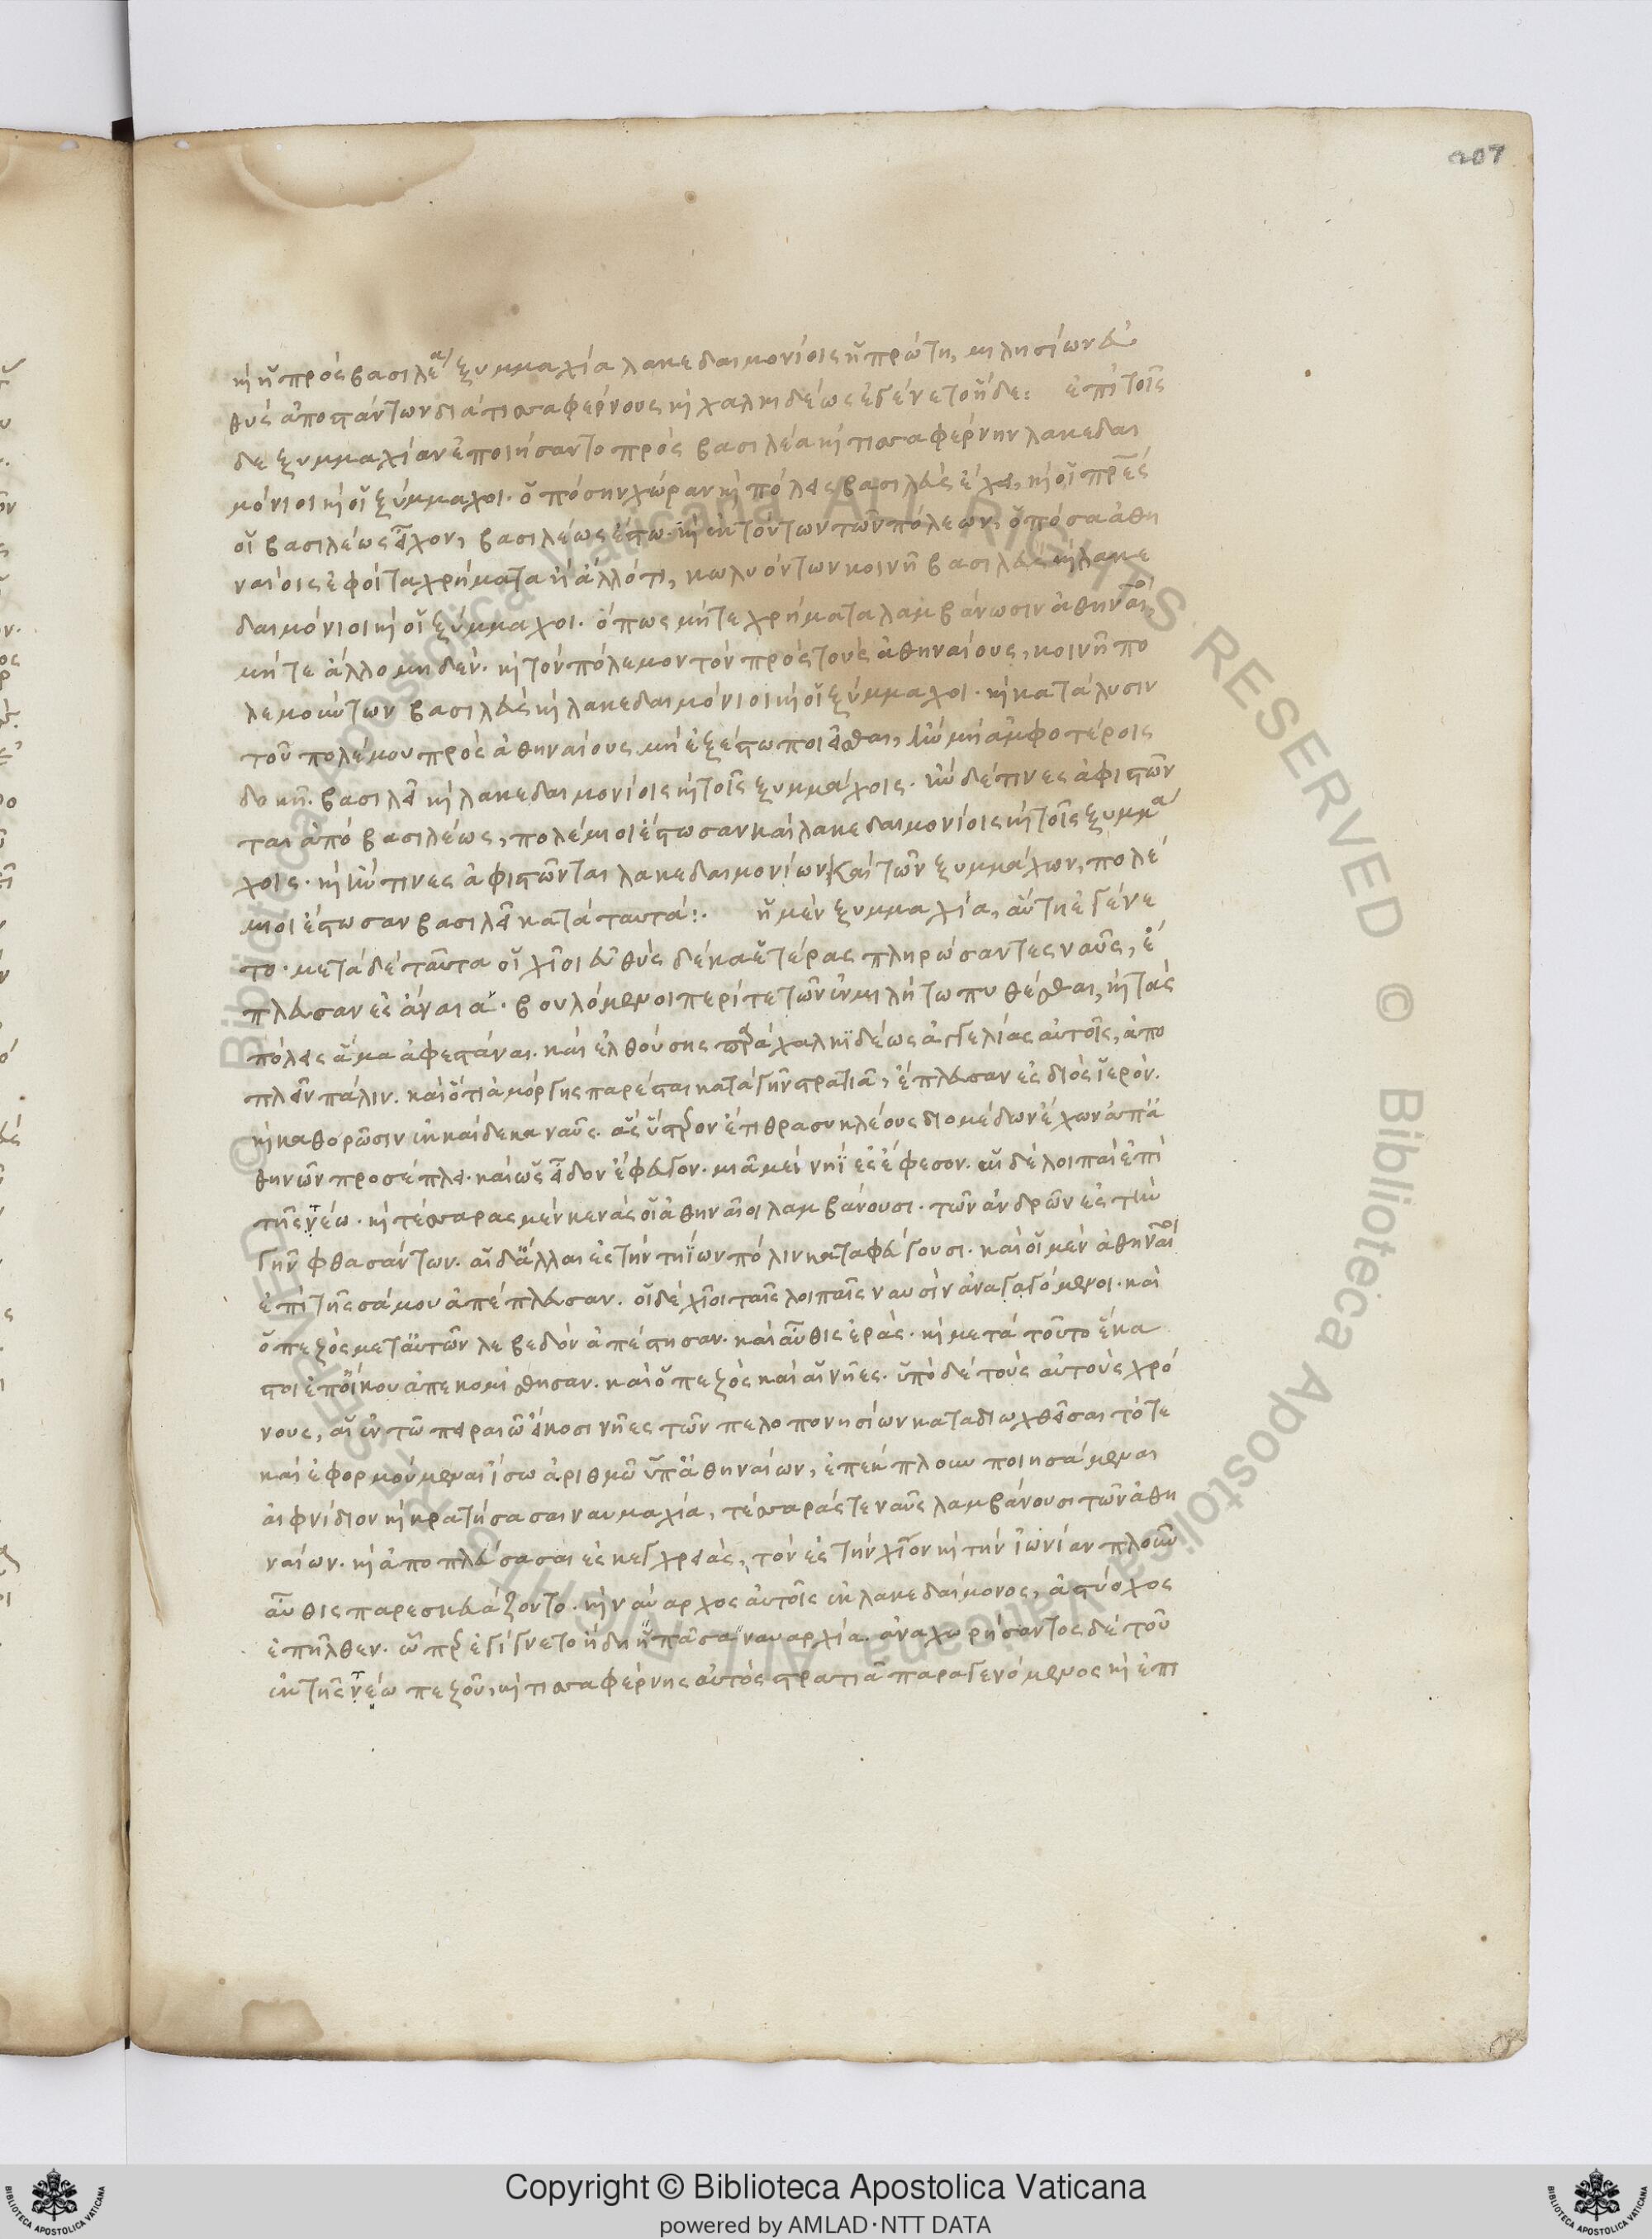 207
κ(αὶ) ἡ πρὸς βασιλέα ξυμμαχία λακεδαιμονίοις ἡ πρώτη, μιλησίων εὐ
θὺς ἀποστάντων διὰ τισσαφέρνους κ(αὶ) χαλκιδέως ἐγένετο ἥδε: ἐπὶ τοῖς
δε ξυμμαχίαν ἐποιήσαντο πρὸς βασιλέα κ(αὶ) τισσαφέρνην λακεδαι
μόνιοι κ(αὶ) οἱ ξύμμαχοι· ὁπόσην χώραν κ(αὶ) πόλεις βασιλεὺς ἔχει, κ(αὶ) οἱ πρες
οἱ βασιλέως εἶχον, βασιλέως ἔστω· κ(αὶ) ἐκ τούτων τῶν πόλεων, ὁπόσα ἀθη
ναίοις ἐφοίτα χρήματα ἢ ἄλλό τι, κωλυόντων κοινῇ βασιλεὺς κ(αὶ) λακε
δαιμόνιοι κ(αὶ) οἱ ξύμμαχοι· ὅπως μήτε χρήματα λαμβάνωσιν ἀθηναῖοι,
μήτε ἄλλο μηδέν· κ(αὶ) τὸν πόλεμον τὸν πρὸς τοὺς ἀθηναίους, κοινῇ πο
λεμούντων βασιλεὺς κ(αὶ) λακεδαιμόνιοι κ(αὶ) οἱ ξύμμαχοι· κ(αὶ) κατάλυσιν
τοῦ πολέμου πρὸς ἀθηναίους μὴ ἐξέστω ποιεῖσθαι, ἢν μὴ ἀμφοτέροις
δοκῇ. βασιλεῖ κ(αὶ) λακεδαιμονίοις κ(αὶ) τοῖς ξυμμάχοις· ἢν δέ τινες ἀφιστῶν
ται ἀπὸ βασιλέως, πολέμιοι ἔστωσαν καὶ λακεδαιμονίοις κ(αὶ) τοῖς ξυμμα
χοις· κ(αὶ) ἤν τινες ἀφιστῶνται λακεδαιμονίων καὶ τῶν ξυμμάχων, πολέ
μιοι ἔστωσαν βασιλεῖ κατὰ ταυτά:· ἡ μὲν ξυμμαχία, αὕτη ἐγένε
το· μετὰ δὲ ταῦτα οἱ χῖοι εὐθὺς δέκα ἑτέρας πληρώσαντες ναῦς, ἔ
πλευσαν ἐς ἄναια· βουλόμενοι περί τε τῶν ἐν μιλήτω πυθέσθαι, κ(αὶ) τὰς
πόλεις ἅμα ἀφιστάναι. καὶ ἐλθούσης παρὰ χαλκιδέως ἀγγελίας αὐτοῖς, ἀπο
πλεῖν πάλιν. καὶ ὅτι ἀμόργης παρέσται κατὰ γῆν στρατιᾶ, ἔπλευσαν ἐς διὸς ἱερόν.
κ(αὶ) καθορῶσιν ἑκκαίδεκα ναῦς. ἃς ὕστερον ἔτι θρασυκλέους διομέδων ἔχων ἀπ᾽ ἀ
θηνῶν προσέπλει. καὶ ὡς εἶδον ἔφευγον. μιᾶ μὲν νηῒ ἐς ἔφεσον. αἱ δὲ λοιπαὶ ἐπὶ
τῆς τέω. κ(αὶ) τέσσαρας μὲν κενὰς οἱ ἀθηναῖοι λαμβάνουσι. τῶν ἀνδρῶν ἐς τὴν
γῆν φθασάντων. αἱ δ᾽ ἄλλαι ἐς τὴν τηΐων πόλιν καταφεύγουσι. καὶ οἱ μὲν ἀθηναῖοι
ἐπὶ τῆς σάμου ἀπέπλευσαν. οἱ δὲ χῖοι ταῖς λοιπαῖς ναυσὶν ἀναγαγόμενοι. καὶ
ὁ πεζὸς μετ᾽ αὐτῶν λέβεδον ἀπέστησαν. καὶ αὖθις ἐράς. κ(αὶ) μετὰ τοῦτο ἕκα
στοι ἐπ᾽ οἴκου ἀπεκομίσθησαν. καὶ ὁ πεζὸς καὶ αἱ νῆες. ὑπὸ δὲ τοὺς αὐτοὺς χρό
νους, αἱ ἐν τῶ πειραιῶ εἴκοσι νῆες τῶν πελοπονησίων καταδιωχθεῖσαι τότε
καὶ ἐφορμούμεναι ἴσω ἀριθμῶ ὑπ᾽ ἀθηναίων, ἐπέκπλουν ποιησάμεναι
αἰφνίδιον κ(αὶ) κρατήσασαι ναυμαχία, τέσσαράς τε ναῦς λαμβάνουσι τῶν ἀθη
ναίων. κ(αὶ) ἀποπλεύσασαι ἐς κεγχρειὰς, τὸν ἐς τὴν χῖον κ(αὶ) τὴν ἰωνίαν πλοῦν
αὖθις παρεσκευάζοντο. κ(αὶ) ναύαρχος αὐτοῖς ἐκ λακεδαίμονος, ἀστύοχος
ἐπῆλθεν. ὧπερ ἐγίγνετο ἤδη ἡ πᾶσα ναυαρχία. ἀναχωρήσαντος δὲ τοῦ
ἐκ τῆς τέω πεζοῦ, κ(αὶ) τισσαφέρνης αὐτὸς στρατιᾶ παραγενόμενος κ(αὶ) ἐπι
Copyright © Biblioteca Apostolica Vaticana
powered by AMLAD·NTT DATA